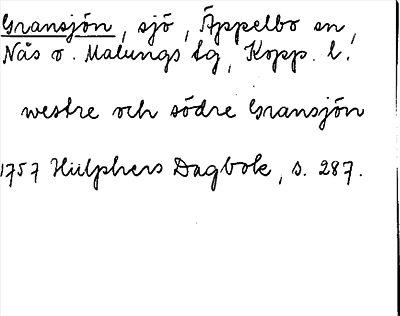 Gransjön, sjö, Äppelbo sn,
Nås o. Malungs tg, Kopp. l.
westre och södre Gransjön
1757 Hülphers Dagbok, s. 287.